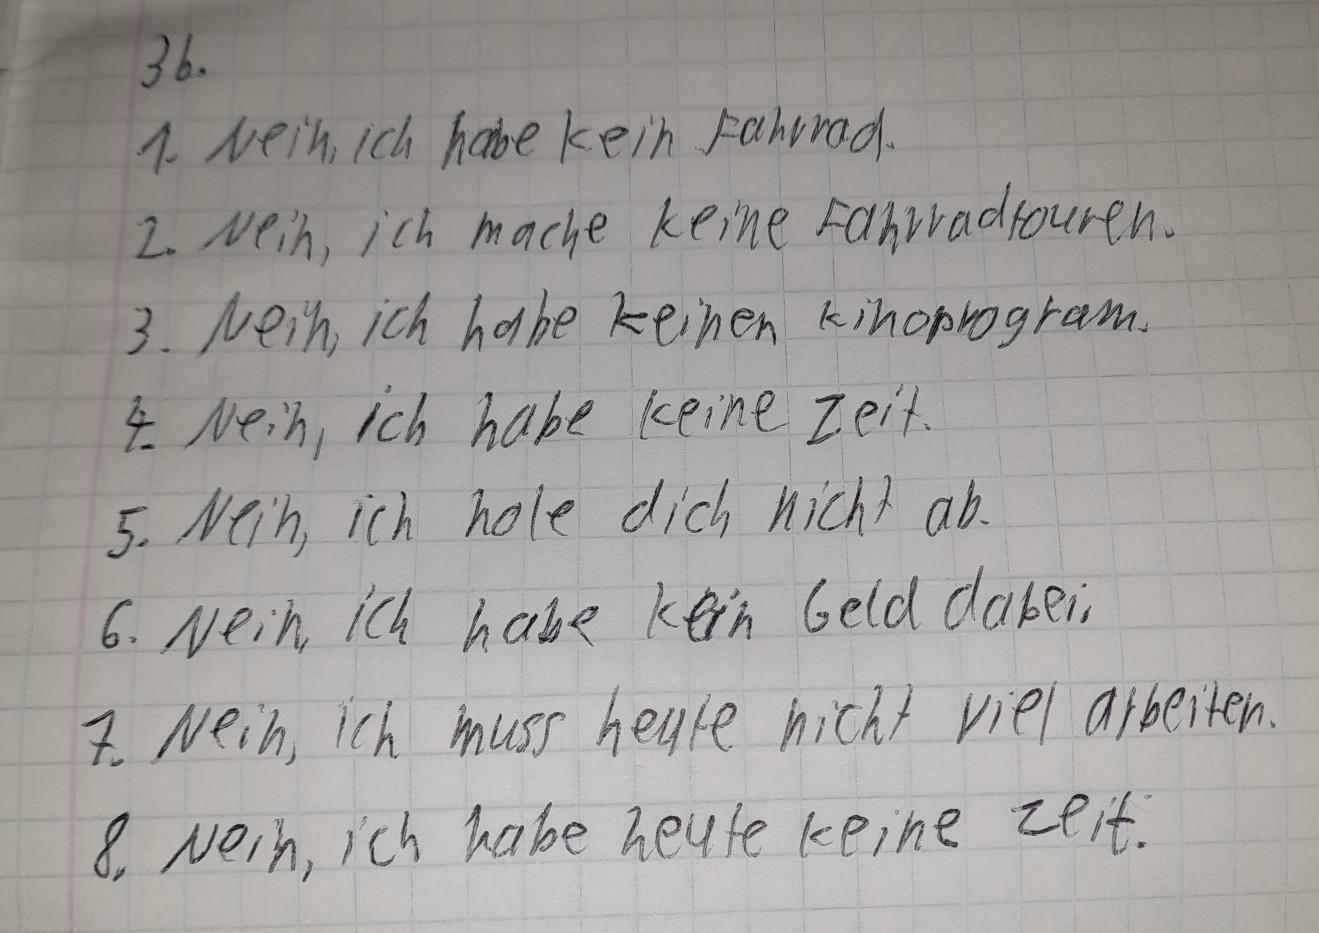 3b.
1. Nein, ich habe kein Fahrrad.
2. Nein, ich mache keine Fahrradtouren.
3. Nein, ich habe keinen Kinoprogram.
4. Nein, ich habe keine Zeit.
5. Nein, ich hole dich nicht ab.
6. Nein, ich habe kein Geld dabei.
7. Nein, ich muss heute nicht viel arbeiten.
8. Nein, ich habe heute keine Zeit.